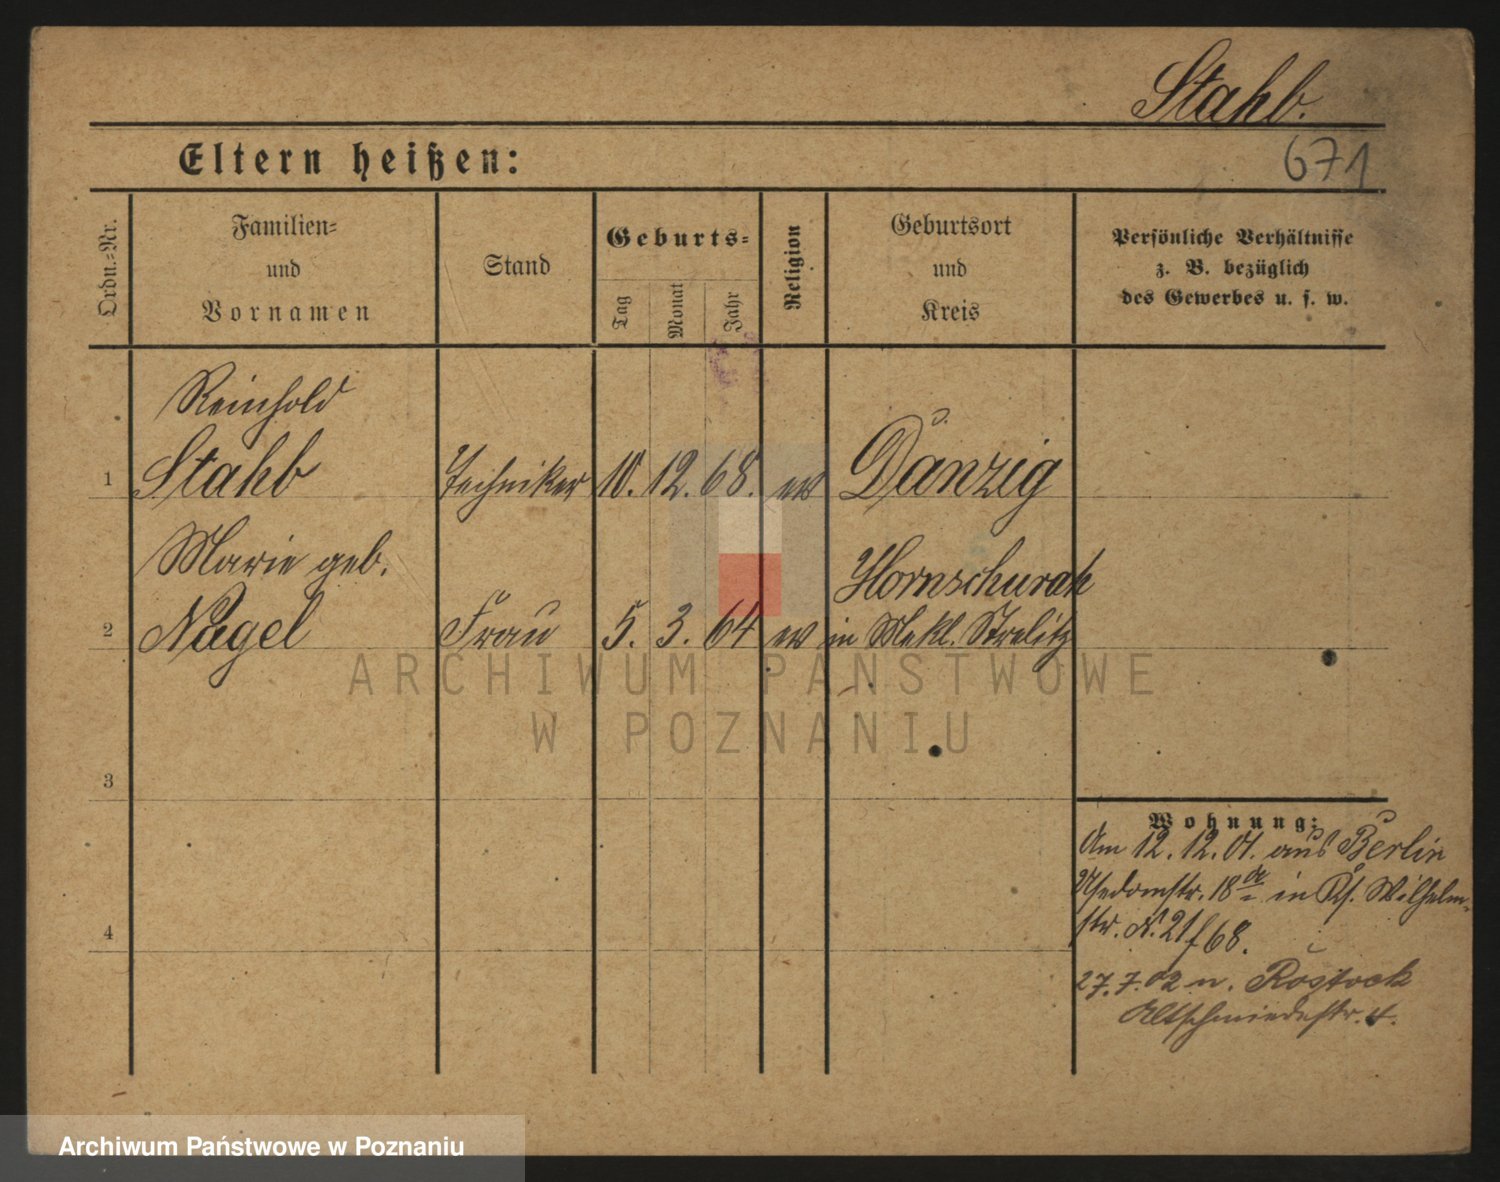 Stahb.
Eltern heißen:
671
Ordn.-Nr.
Familien-
und
Vornamen
Stand
Geburts-
Tag
Monat
Jahr
Religion
Geburtsort
und
Kreis
Persönliche Verhältnisse
z. B. bezüglich
des Gewerbes u. s. w.
Reinhold
1 Stahb Techniker 10. 12. 68. ev Danzig
Marie geb. Hornschurah
2 Nagel Frau 5. 3. 64 ev in Mekl. Strelitz
ARCHIWUM PAŃSTWOWE
W POZNANIU
3
Wohnung:
Am 12. 12. 01. aus Berlin
Usedomstr. 18a in Ks. Wilhelm-
4
str. N. 21/68.
27. 7. 02 n. Rostock
Altschmiedestr. 4.
Archiwum Państwowe w Poznaniu